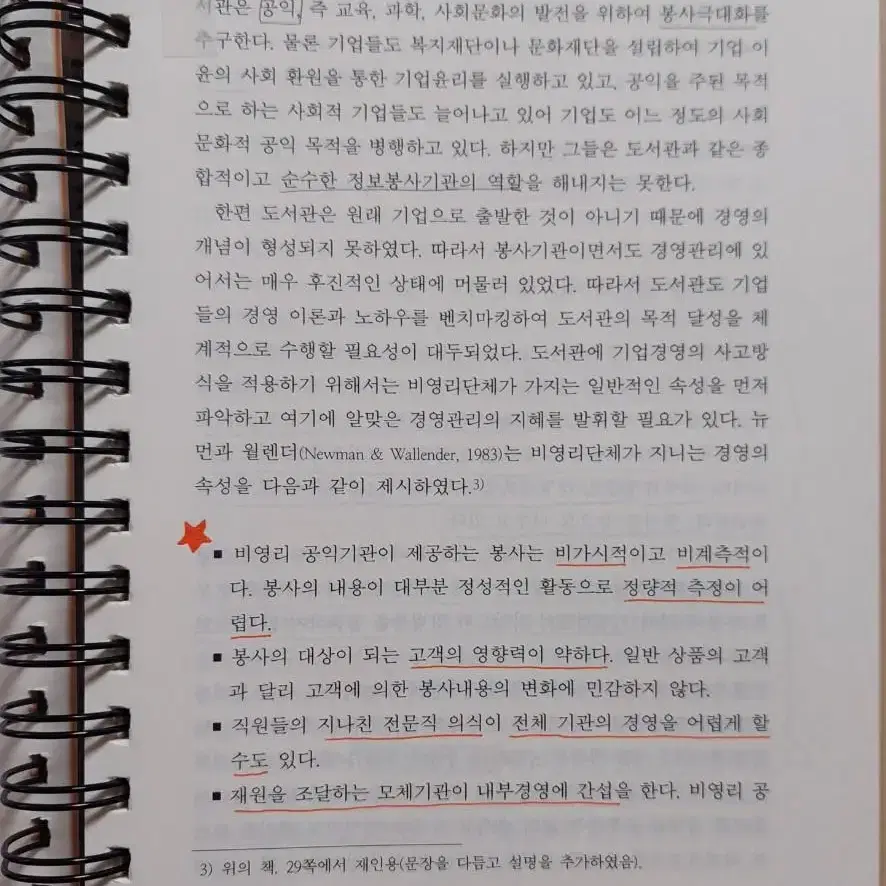 서관은 공익, 즉 교육, 과학, 사회문화의 발전을 위하여 봉사극대화를
추구한다. 물론 기업들도 복지재단이나 문화재단을 설립하여 기업 이
윤의 사회 환원을 통한 기업윤리를 실행하고 있고, 공익을 주된 목적
으로 하는 사회적 기업들도 늘어나고 있어 기업도 어느 정도의 사회
문화적 공익 목적을 병행하고 있다. 하지만 그들은 도서관과 같은 종
합적이고 순수한 정보봉사기관의 역할을 해내지는 못한다.
한편 도서관은 원래 기업으로 출발한 것이 아니기 때문에 경영의
개념이 형성되지 못하였다. 따라서 봉사기관이면서도 경영관리에 있
어서는 매우 후진적인 상태에 머물러 있었다. 따라서 도서관도 기업
들의 경영 이론과 노하우를 벤치마킹하여 도서관의 목적 달성을 체
계적으로 수행할 필요성이 대두되었다. 도서관에 기업경영의 사고방
식을 적용하기 위해서는 비영리단체가 가지는 일반적인 속성을 먼저
파악하고 여기에 알맞은 경영관리의 지혜를 발휘할 필요가 있다. 뉴
먼과 월렌더(Newman & Wallender, 1983)는 비영리단체가 지니는 경영의
속성을 다음과 같이 제시하였다.3)
■ 비영리 공익기관이 제공하는 봉사는 비가시적이고 비계측적이
다. 봉사의 내용이 대부분 정성적인 활동으로 정량적 측정이 어
렵다.
■ 봉사의 대상이 되는 고객의 영향력이 약하다. 일반 상품의 고객
과 달리 고객에 의한 봉사내용의 변화에 민감하지 않다.
■ 직원들의 지나친 전문직 의식이 전체 기관의 경영을 어렵게 할
수도 있다.
■ 재원을 조달하는 모체기관이 내부경영에 간섭을 한다. 비영리 공
3) 위의 책, 29쪽에서 재인용(문장을 다듬고 설명을 추가하였음).